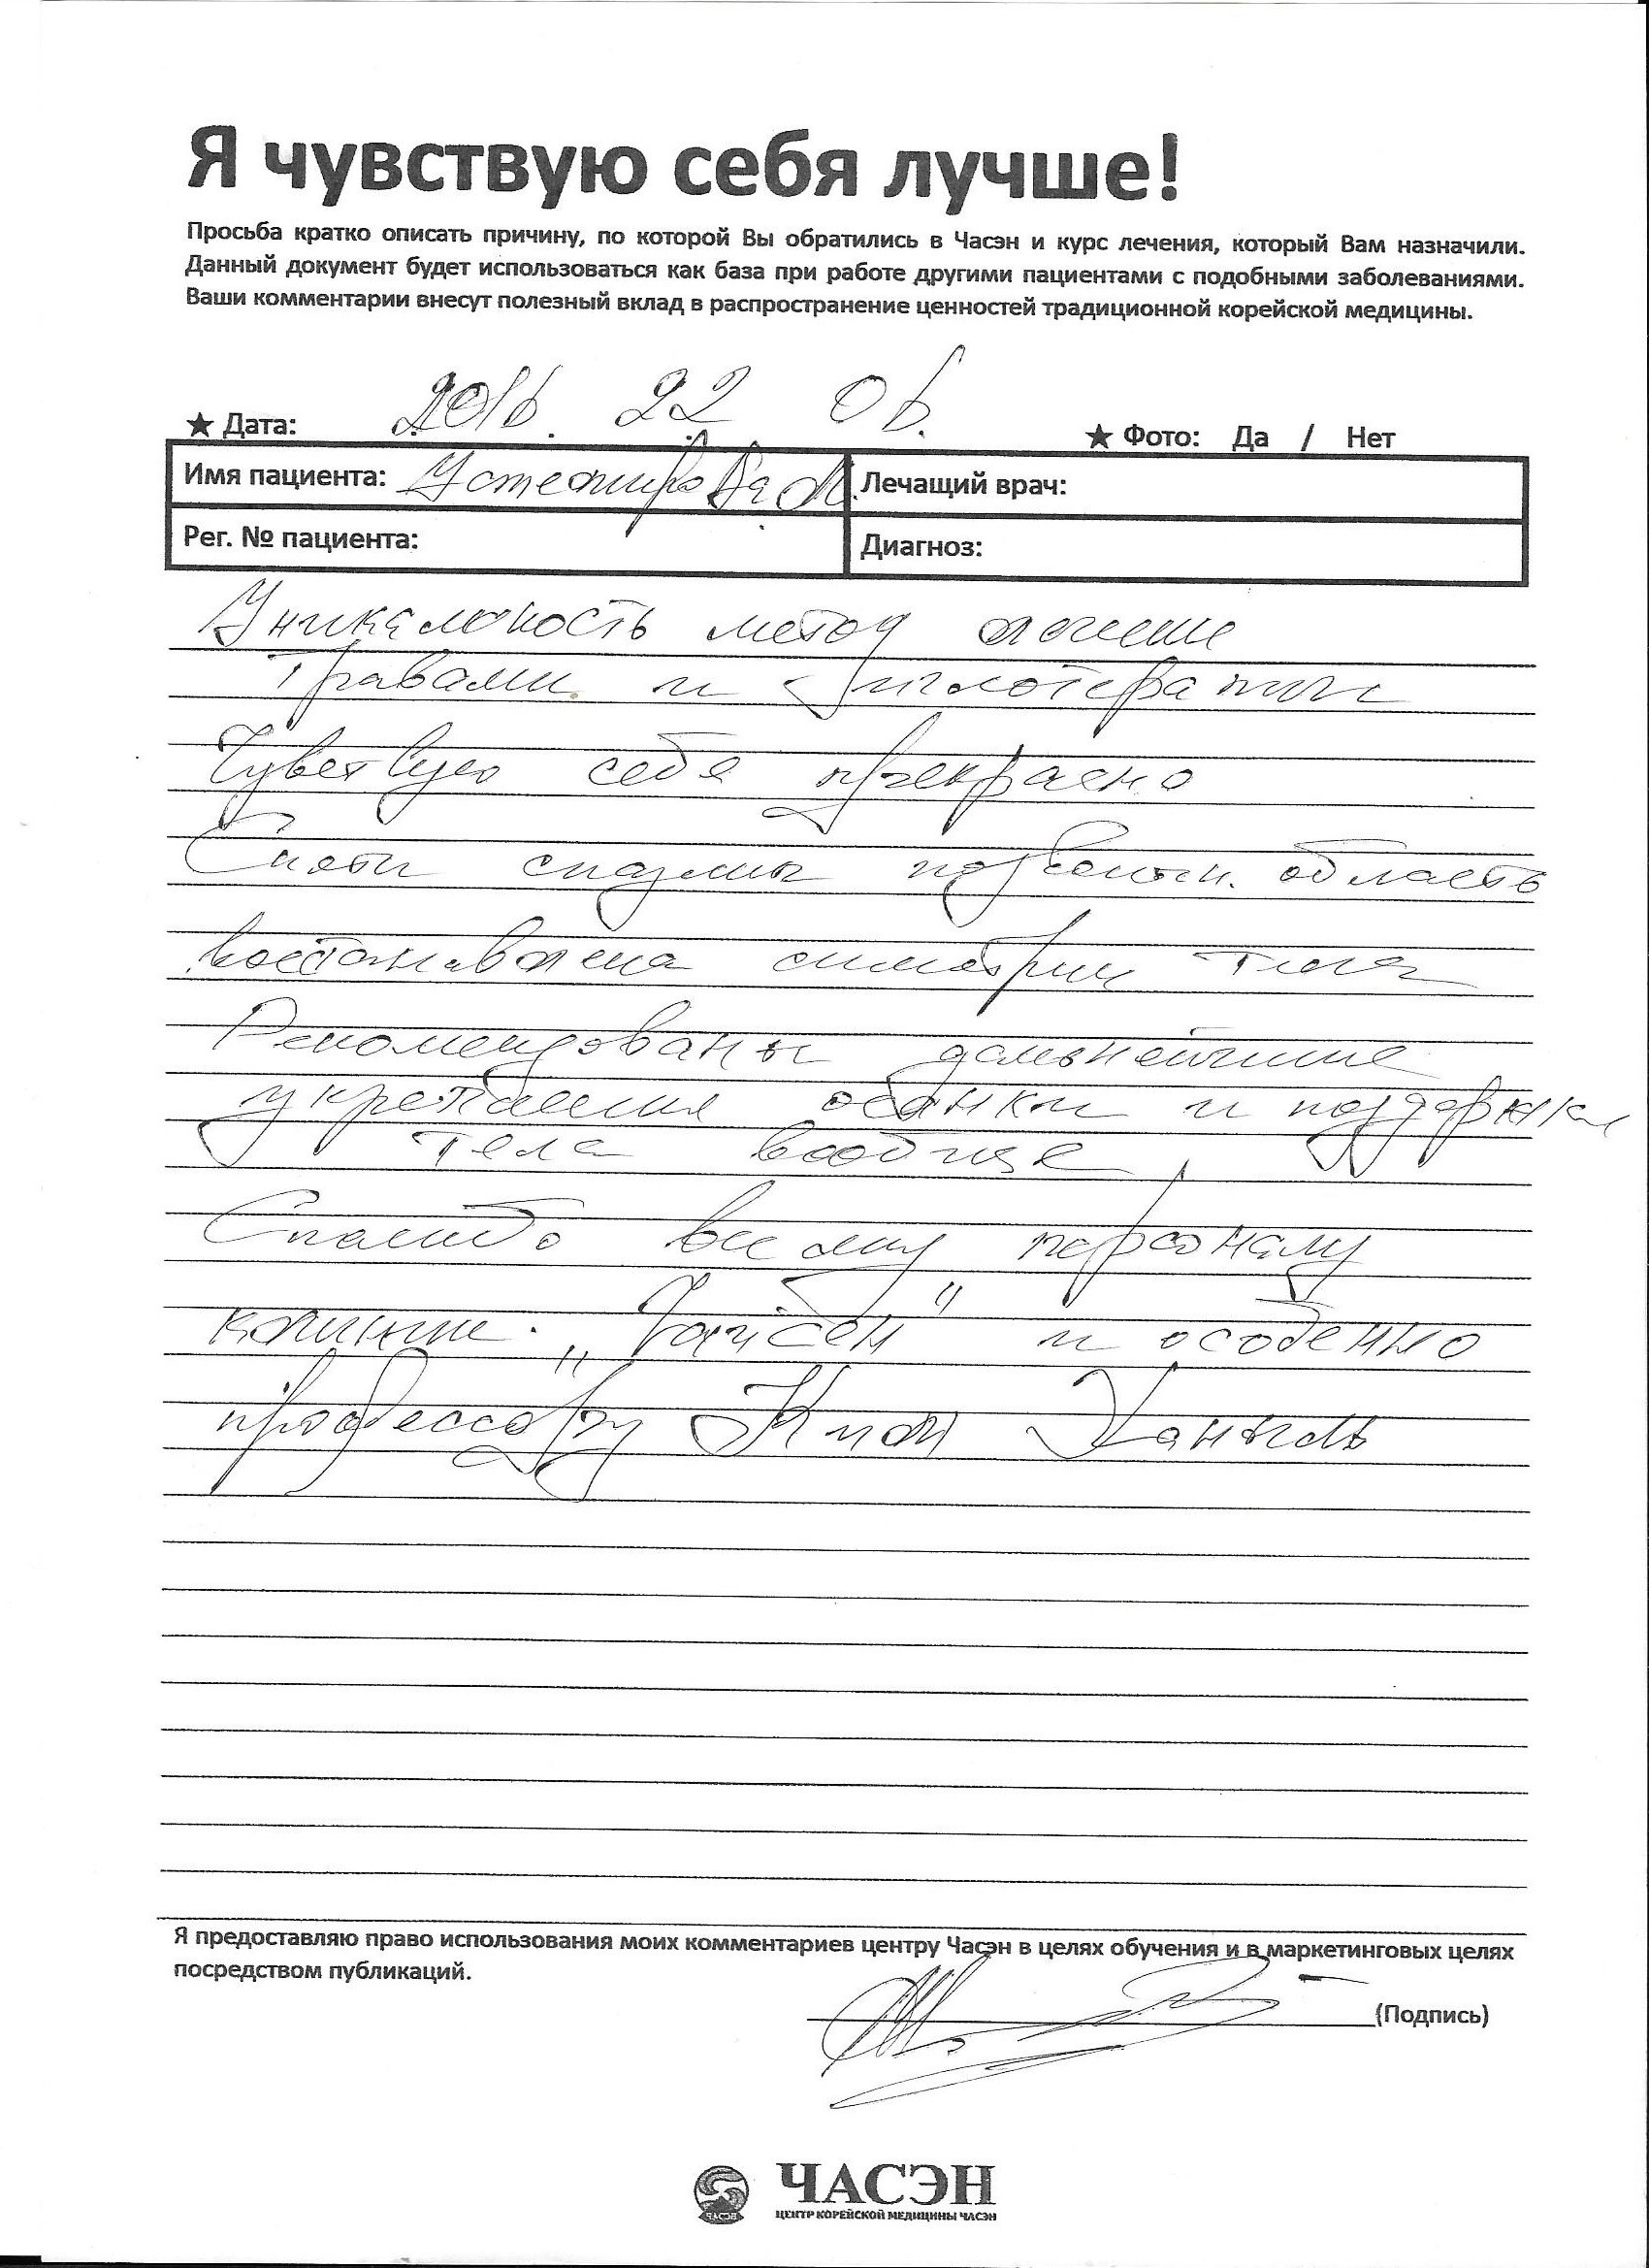 Я чувствую себя лучше!
Просьба кратко описать причину, по которой Вы обратились в Часэн и курс лечения, который Вам назначили.
Данный документ будет использоваться как база при работе другими пациентами с подобными заболеваниями.
Ваши комментарии внесут полезный вклад в распространение ценностей традиционной корейской медицины.
★ Дата: 2016. 22 06. ★ Фото: Да / Нет
Имя пациента: Лечащий врач:
Рег. № пациента: Диагноз:
Уникальность метод лечение
Травами и иглотерапии
Чувствую себя прекрасно
Сняты спазмы область
востановлена симетрии тела
Рекомендованы дальнейшие
укрепления осанки и поддержки
тела вообще
Спасибо всему персоналу
клиники „Чайсен" и особенно
профессору Ким Ханыль
Я предоставляю право использования моих комментариев центру Часэн в целях обучения и в маркетинговых целях
посредством публикаций.
(Подпись)
ЧАСЭН
ЦЕНТР КОРЕЙСКОЙ МЕДИЦИНЫ ЧАСЭН